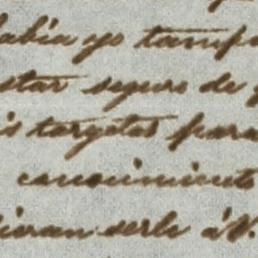 había yo tampo
star seguro de q
is targetas para
conocimiento
ieran serle á V.